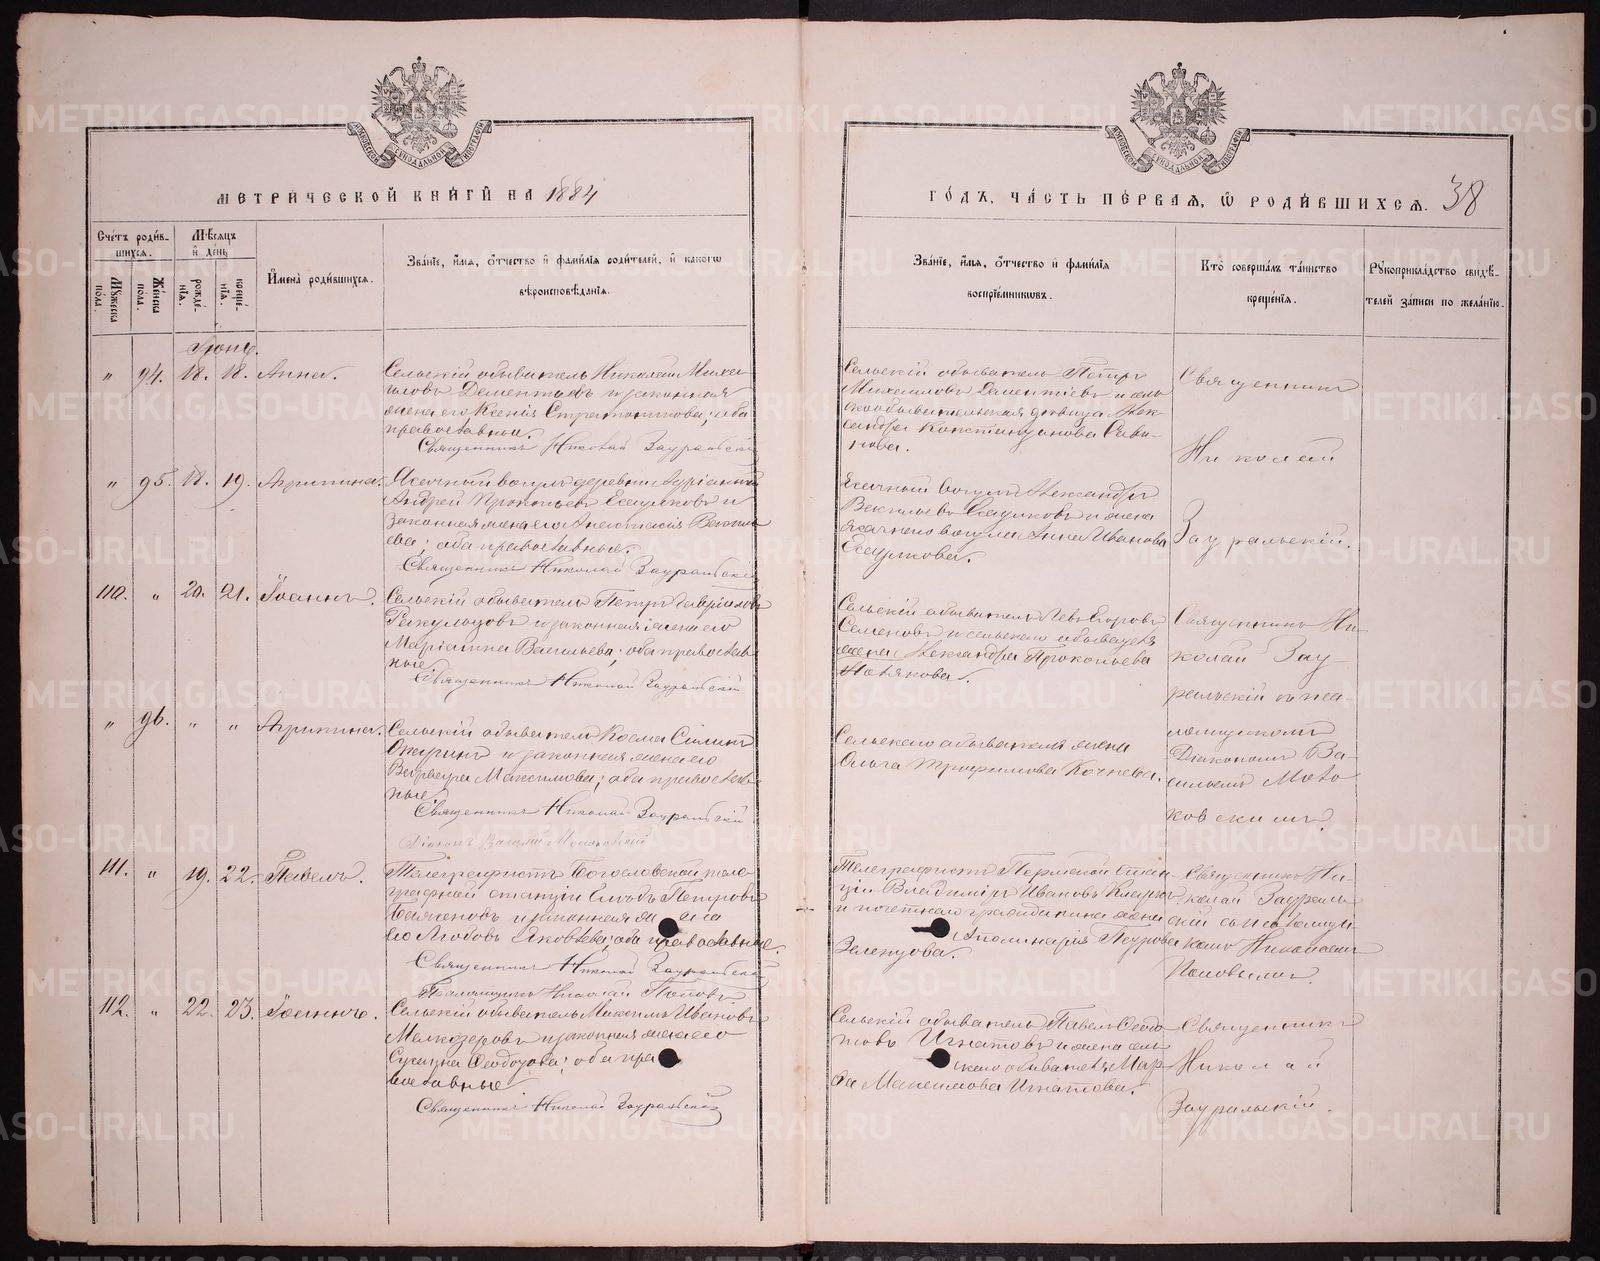 МЕТРИЧЕСКОЙ КНИГИ НА 1884
Счетъ родив-
шихся.
Мѣсяцъ
и день
Мужеска
пола.
Женска
пола.
рожде-
нія.
креще-
нія.
Имена родившихся.
Званіе, имя, отчество и фамилія родителей, и какого
вѣроисповѣданія.
Іюнь.
" 94. 18. 18. Анна.
Сельскій обыватель Николай Михаи-
ловъ Дементьевъ и законная
жена его Ксенія Стратоникова; оба
православные.
Священникъ Николай Зауральскій
" 95. 18. 19. Агрипина.
Ясачный вогулъ деревни
Андрей Прокопьевъ Есаулковъ и
законная жена его Анастасія Василь
ева; оба православные.
Священникъ Николай Зауральскій
110. " 20. 21. Іоаннъ.
Сельскій обыватель Петръ Гавриловъ
и законная жена его
Маріамна Васильева; оба православ-
ные.
Священникъ Николай Зауральскій
" 96. " " Агрипина.
Сельскій обыватель Косма Силинъ
и законная жена его
Варвара Максимова; оба православ-
ные.
Священникъ Николай Зауральскій
Діаконъ Василій
111. " 19. 22. Павелъ.
Телеграфистъ Богословской теле-
графной станціи Петровъ
и законная же на
его Любовь Яковлева; оба православные.
Священникъ Николай Зауральскій
Псаломщикъ Николай Поповъ
112. " 22. 23. Іоаннъ.
Сельскій обыватель Максимъ Ивановъ
Мелкозеровъ и законная жена его
Сусанна Ѳеодорова; оба пра
вославные
Священникъ Николай Зауральскій
ГОДЪ, ЧАСТЬ ПЕРВАЯ, Ѡ РОДИВШИХСЯ. 38
Званіе, имя, отчество и фамилія
воспріемниковъ.
Кто совершалъ таинство
крещенія.
Рукоприкладство свидѣ-
телей записи по желанію.
Сельскій обыватель Петръ
Михаиловъ Дементіевъ и сель
скообывательская дѣвица Алек-
сандра Константинова Сави-
нова.
Священникъ
Николай
Зауральскій.
Ясачный вогулъ Александръ
Васильевъ Есаулковъ и жена
ясачнаго вогула Анна Иванова
Есаулкова.
Сельскій обыватель Левъ Егоровъ
Семеновъ и сельскаго обывателя
жена Александра Прокопьева
Священникъ Ни-
колай Зау-
ральскій съ пса-
ломщикомъ
Діакономъ Ва-
сильемъ
Сельскаго обывателя жена
Ольга Трофимова Кочнева.
Телеграфистъ Пермской стан-
ціи Владиміръ Ивановъ
и почетнаго гражданина жена
Аполинарія Петрова
Зеленцова.
Священникъ Ни-
колай Заураль-
скій съ псаломщи
комъ Николаемъ
Поповымъ.
Сельскій обыватель Павелъ Ѳедо
товъ Игнатовъ и жена сель
скаго обывателя Мар-
ѳа Максимова Игнатова.
Священникъ
Николай
Зауральскій.
METRIKI.GASO-URAL.RU